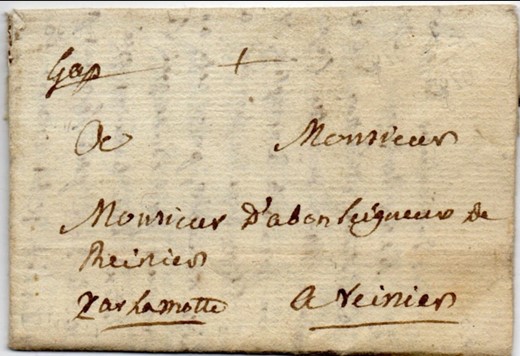 Gap +
A Monsieur
Monsieur D'abon Seigneur de
Reinier
par La motte A reinier